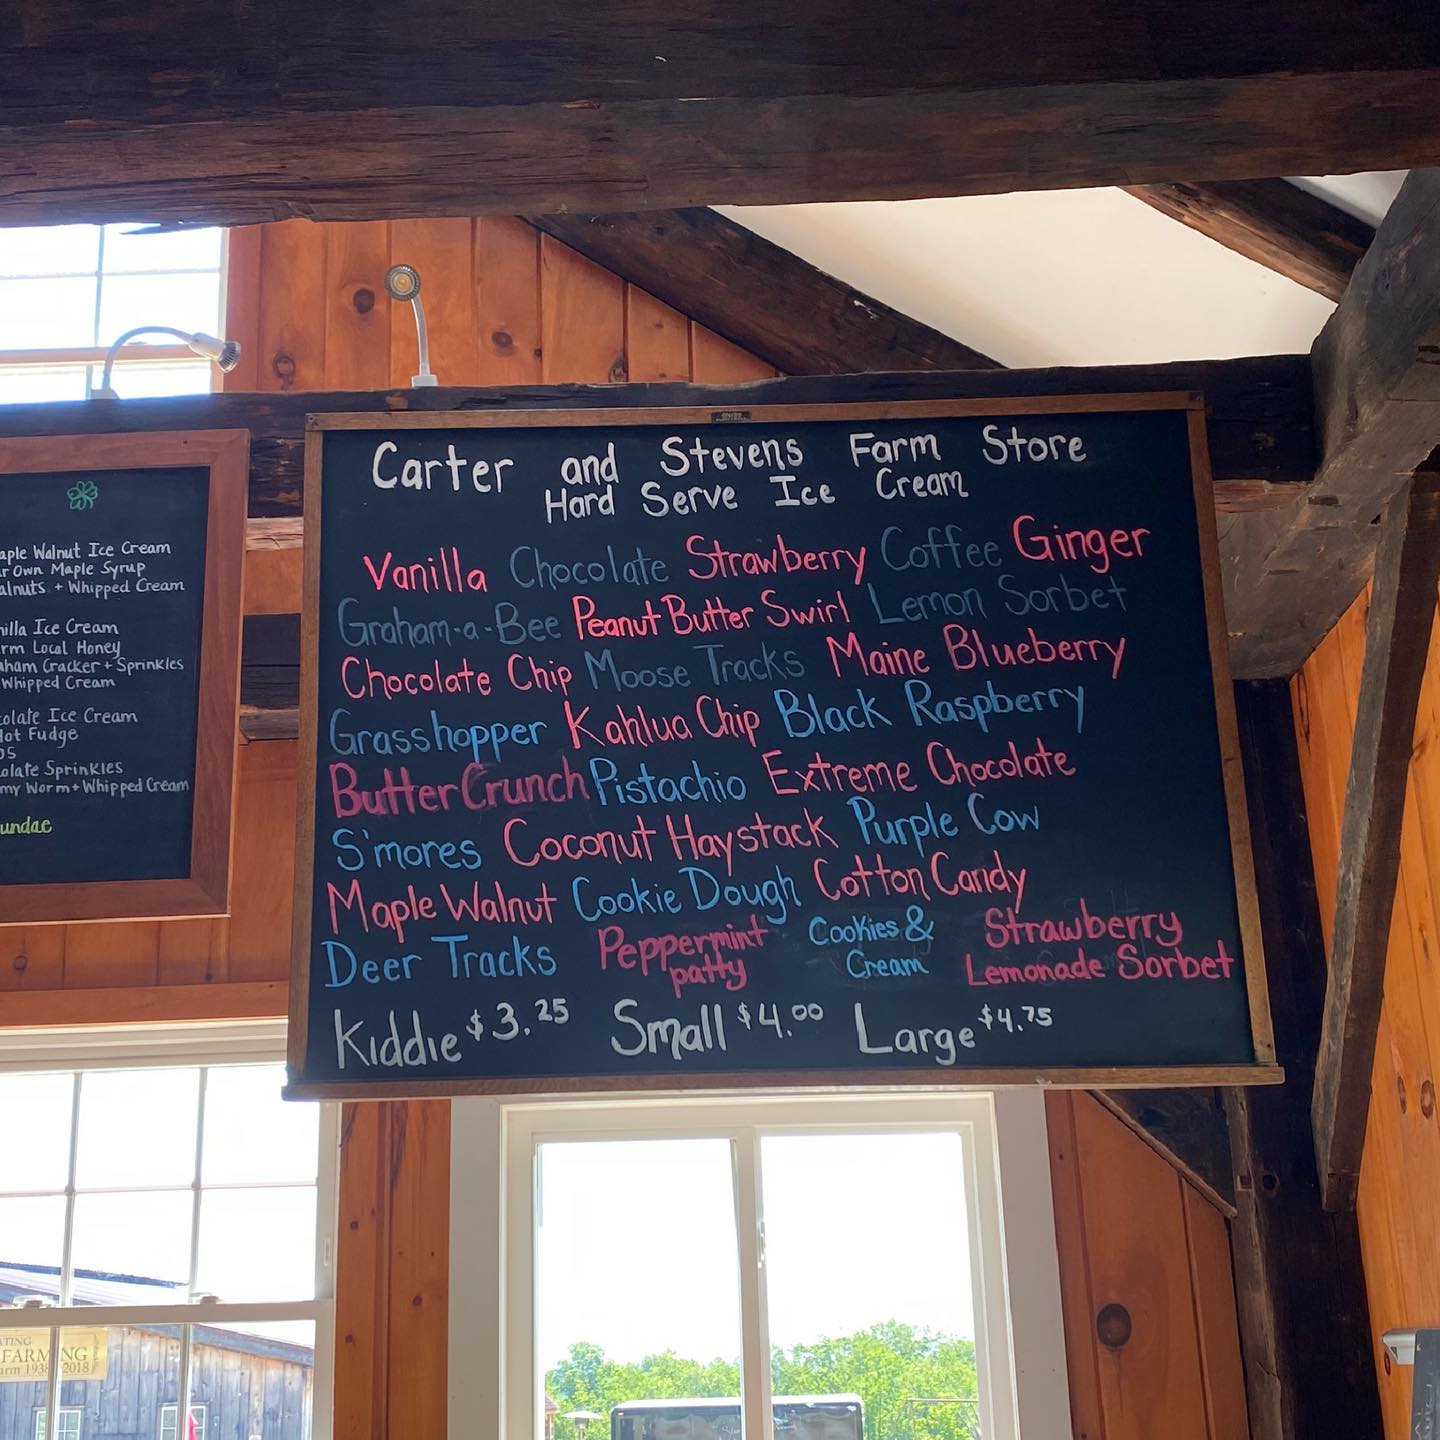 Maple Walnut Ice Cream
Our Own Maple Syrup
Walnuts + Whipped Cream
Vanilla Ice Cream
Local Honey
Graham Cracker + Sprinkles
Whipped Cream
Chocolate Ice Cream
Hot Fudge
Chocolate Sprinkles
Worm + Whipped Cream
Carter and Stevens Farm Store
Hard Serve Ice Cream
Vanilla Chocolate Strawberry Coffee Ginger
Graham-a-Bee Peanut Butter Swirl Lemon Sorbet
Chocolate Chip Moose Tracks Maine Blueberry
Grasshopper Kahlua Chip Black Raspberry
Butter Crunch Pistachio Extreme Chocolate
S'mores Coconut Haystack Purple Cow
Maple Walnut Cookie Dough Cotton Candy
Deer Tracks Peppermint patty Cookies & Cream Strawberry Lemonade Sorbet
Kiddie $3.25 Small $4.00 Large $4.75
FARMING
1938 2018